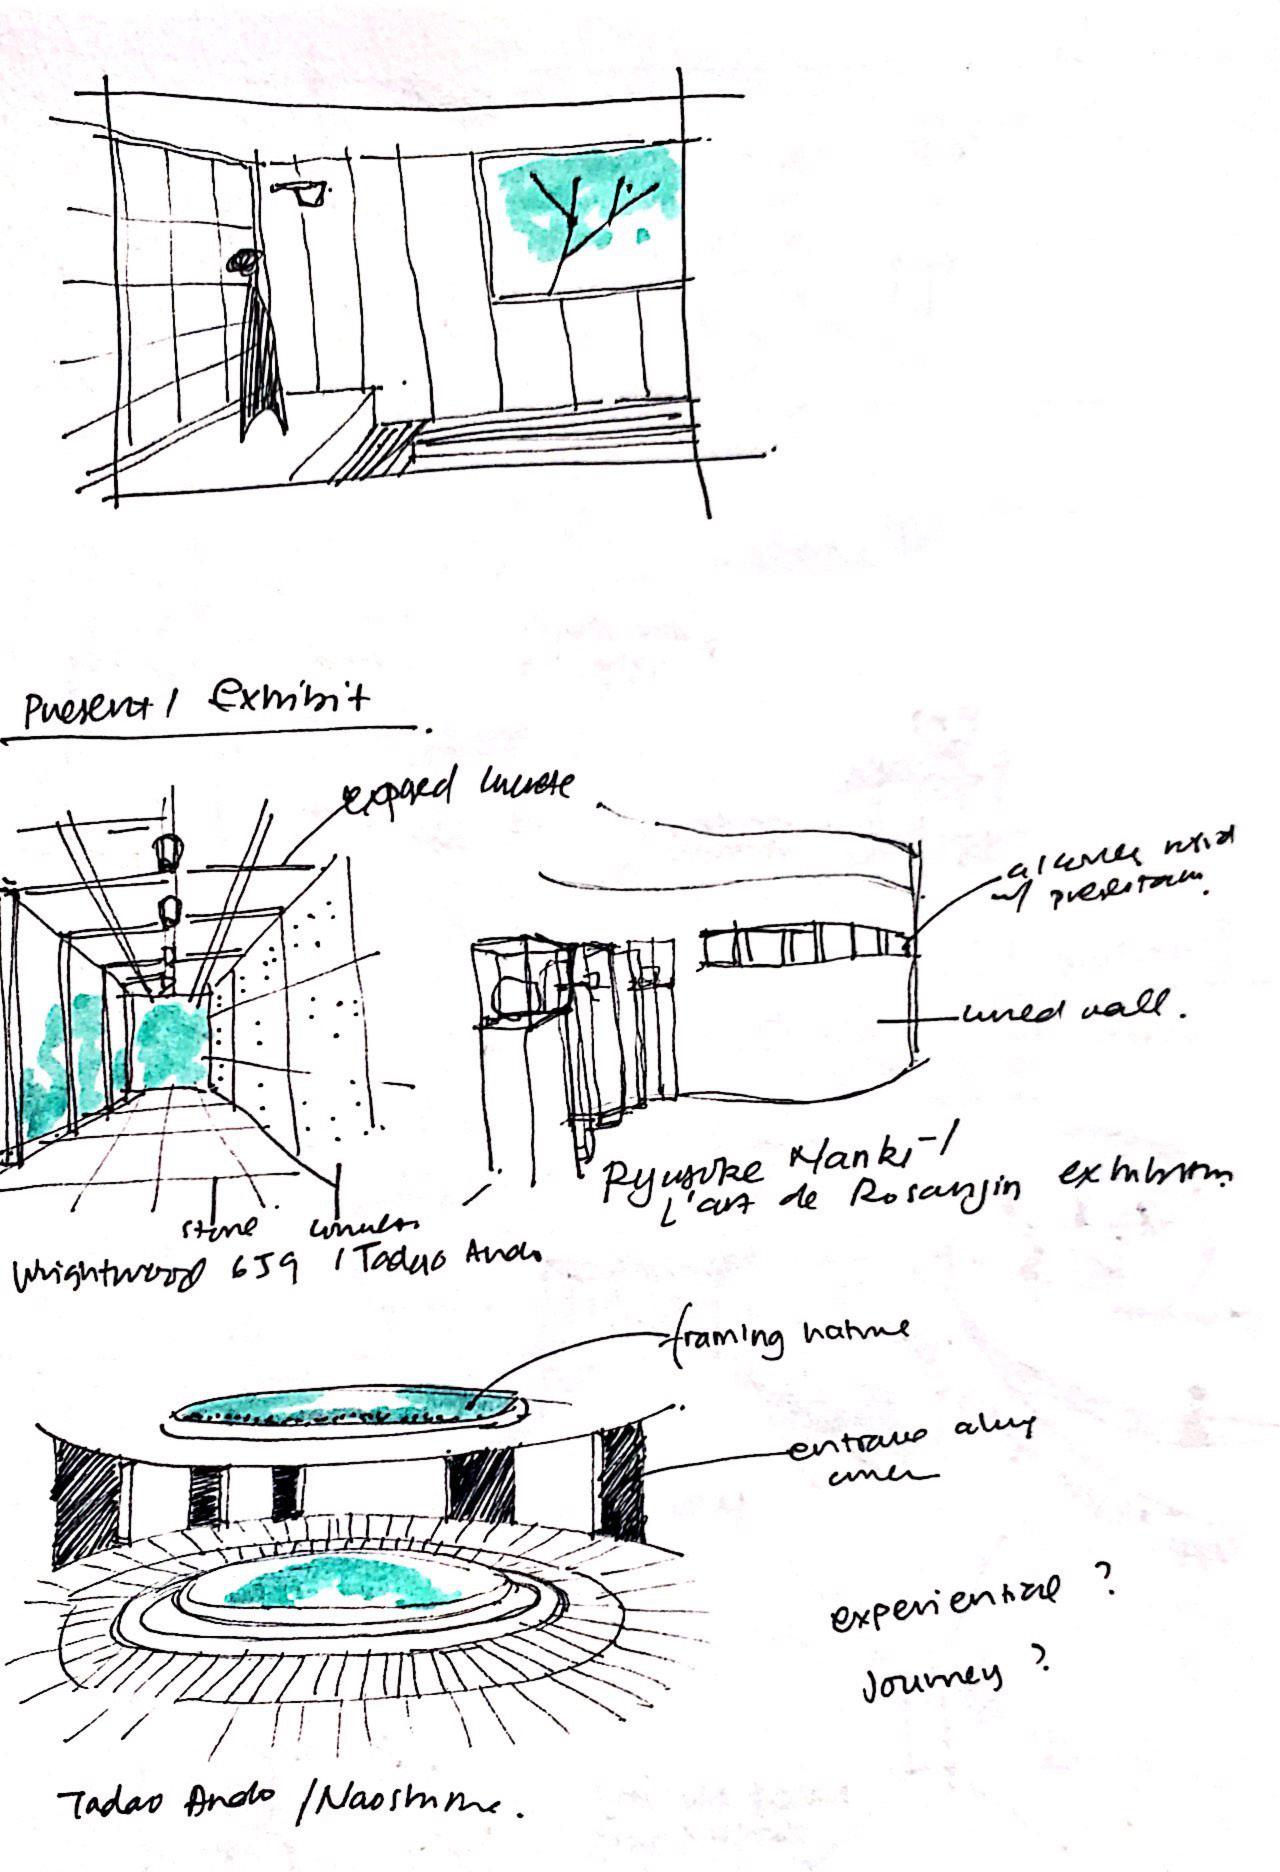 Present / Exhibit
exposed concrete
w/
curved wall.
Ryusuke Nanki /
L'art de Rosanjin exhibition
stone concrete
Wrightwood 659 / Tadao Ando
framing nature
entrance along
experiential ?
Journey ?
Tadao Ando / Naoshima.